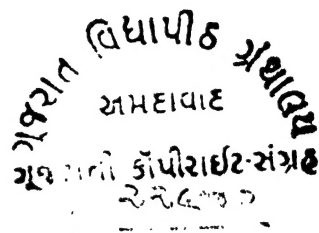 ગૂજરાત વિદ્યાપીઠ ગ્રંથાલય
અમદાવાદ
કૉપીરાઈટ-સંગ્રહ